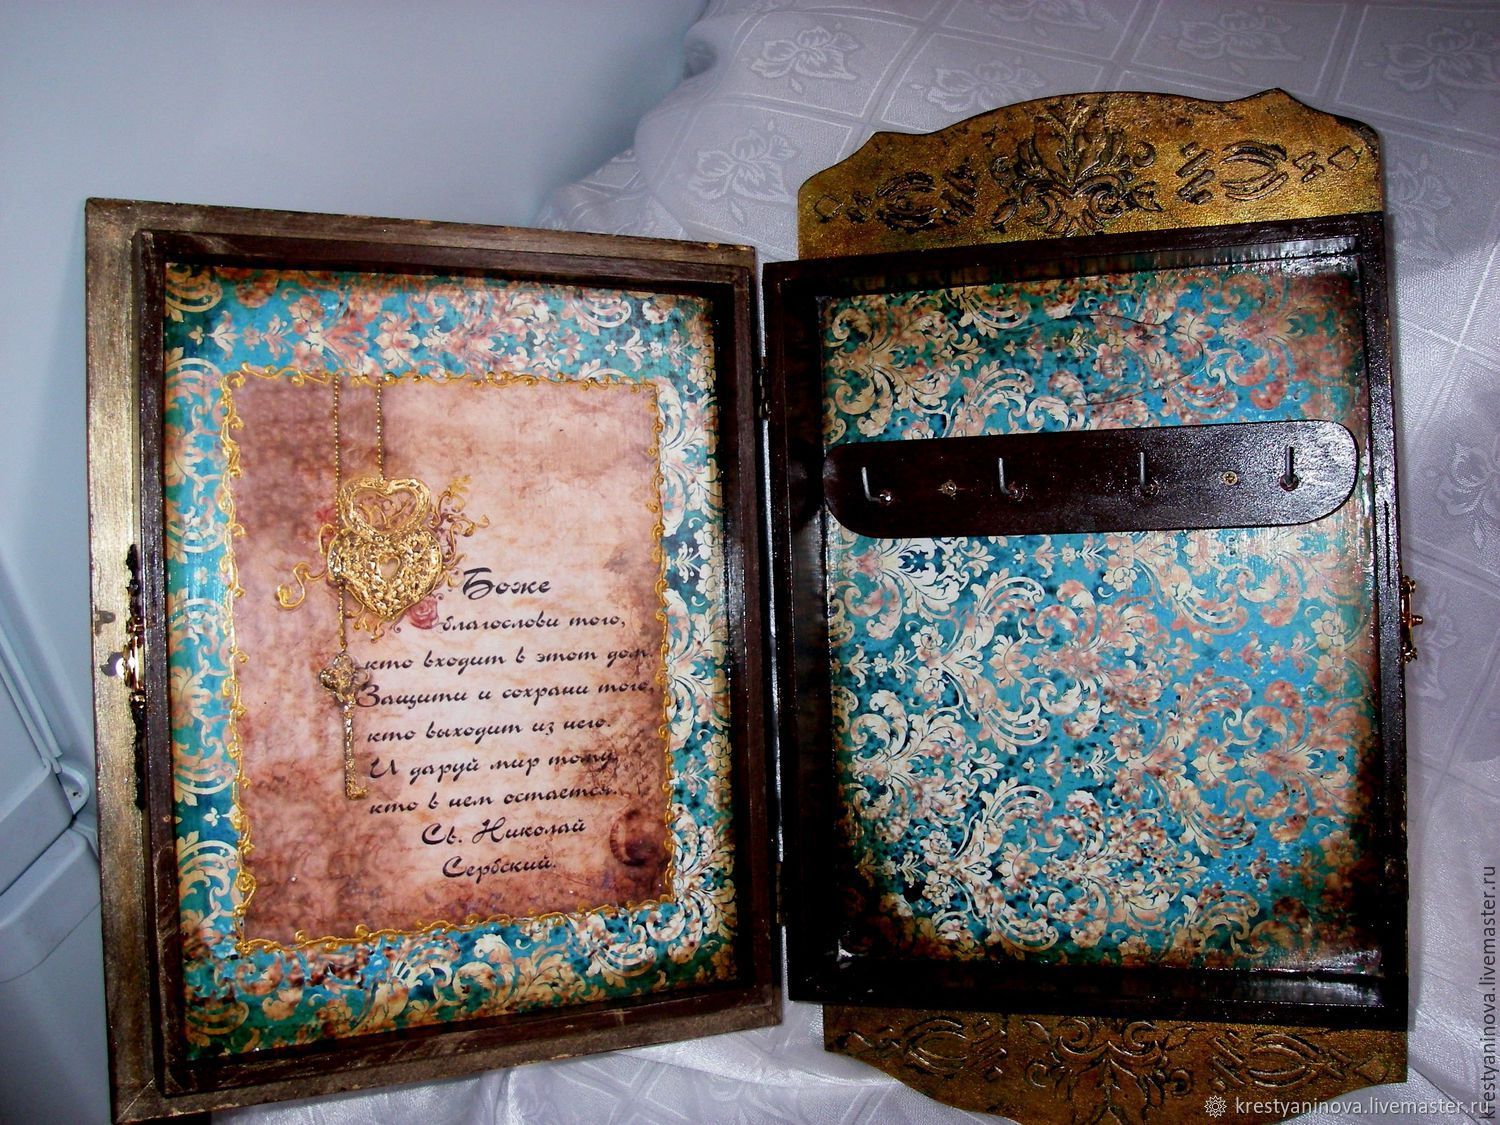 Боже
благослови того,
кто входит в этот дом.
Защити и сохрани того,
кто выходит из него.
И даруй мир тому,
кто в нем остается.
Св. Николай
Сербский.
krestyaninova.livemaster.ru
krestyaninova.livemaster.ru